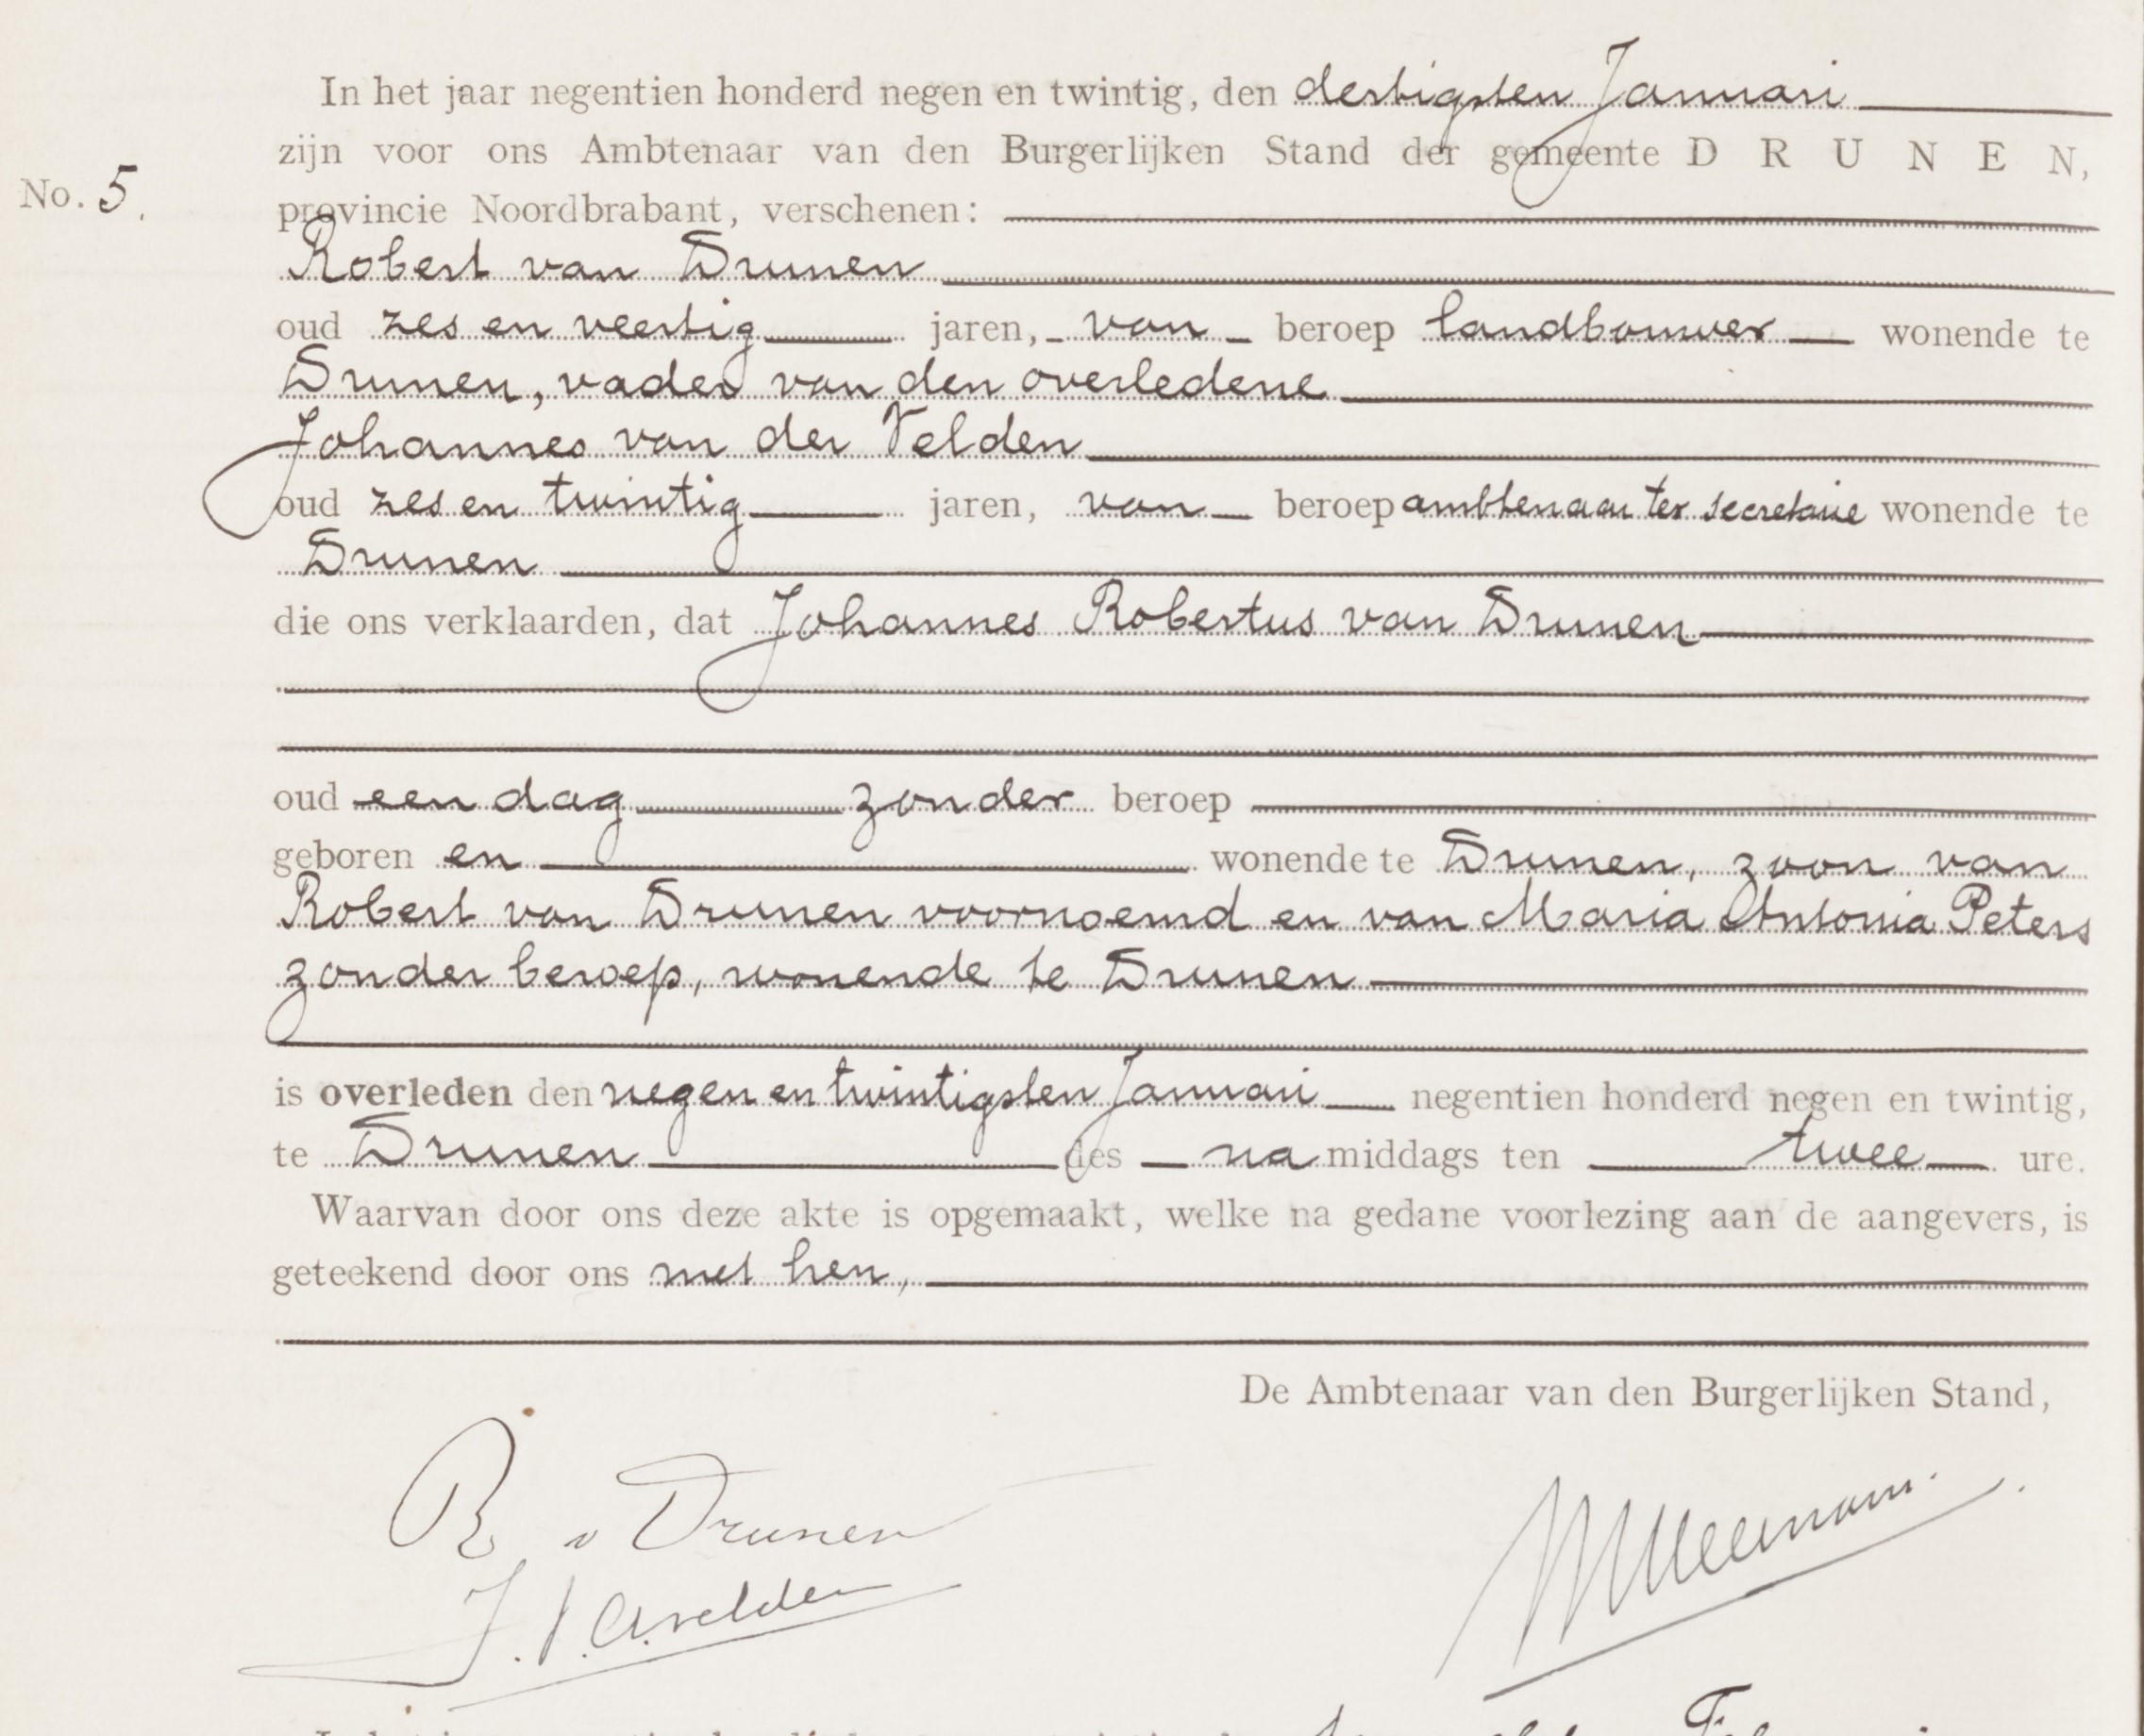 In het jaar negentien honderd negen en twintig, den dertigsten Januari
zijn voor ons Ambtenaar van den Burgerlijken Stand der gemeente DRUNEN,
No. 5.
provincie Noordbrabant, verschenen:
Robert van Drunen
oud zes en veertig jaren, van beroep landbouwer wonende te
Drunen, vader van den overledene
Johannes van der Velden
oud zes en twintig jaren, van beroep ambtenaar ter secretarie wonende te
Drunen
die ons verklaarden, dat Johannes Robertus van Drunen
oud een dag zonder beroep
geboren en wonende te Drunen, zoon van
Robert van Drunen voornoemd en van Maria Antonia Peters
zonder beroep, wonende te Drunen
is overleden den negen en twintigsten Januari negentien honderd negen en twintig,
te Drunen des na middags ten twee ure.
Waarvan door ons deze akte is opgemaakt, welke na gedane voorlezing aan de aangevers, is
geteekend door ons met hen,
De Ambtenaar van den Burgerlijken Stand,
R v Drunen
J. v. d. Velden